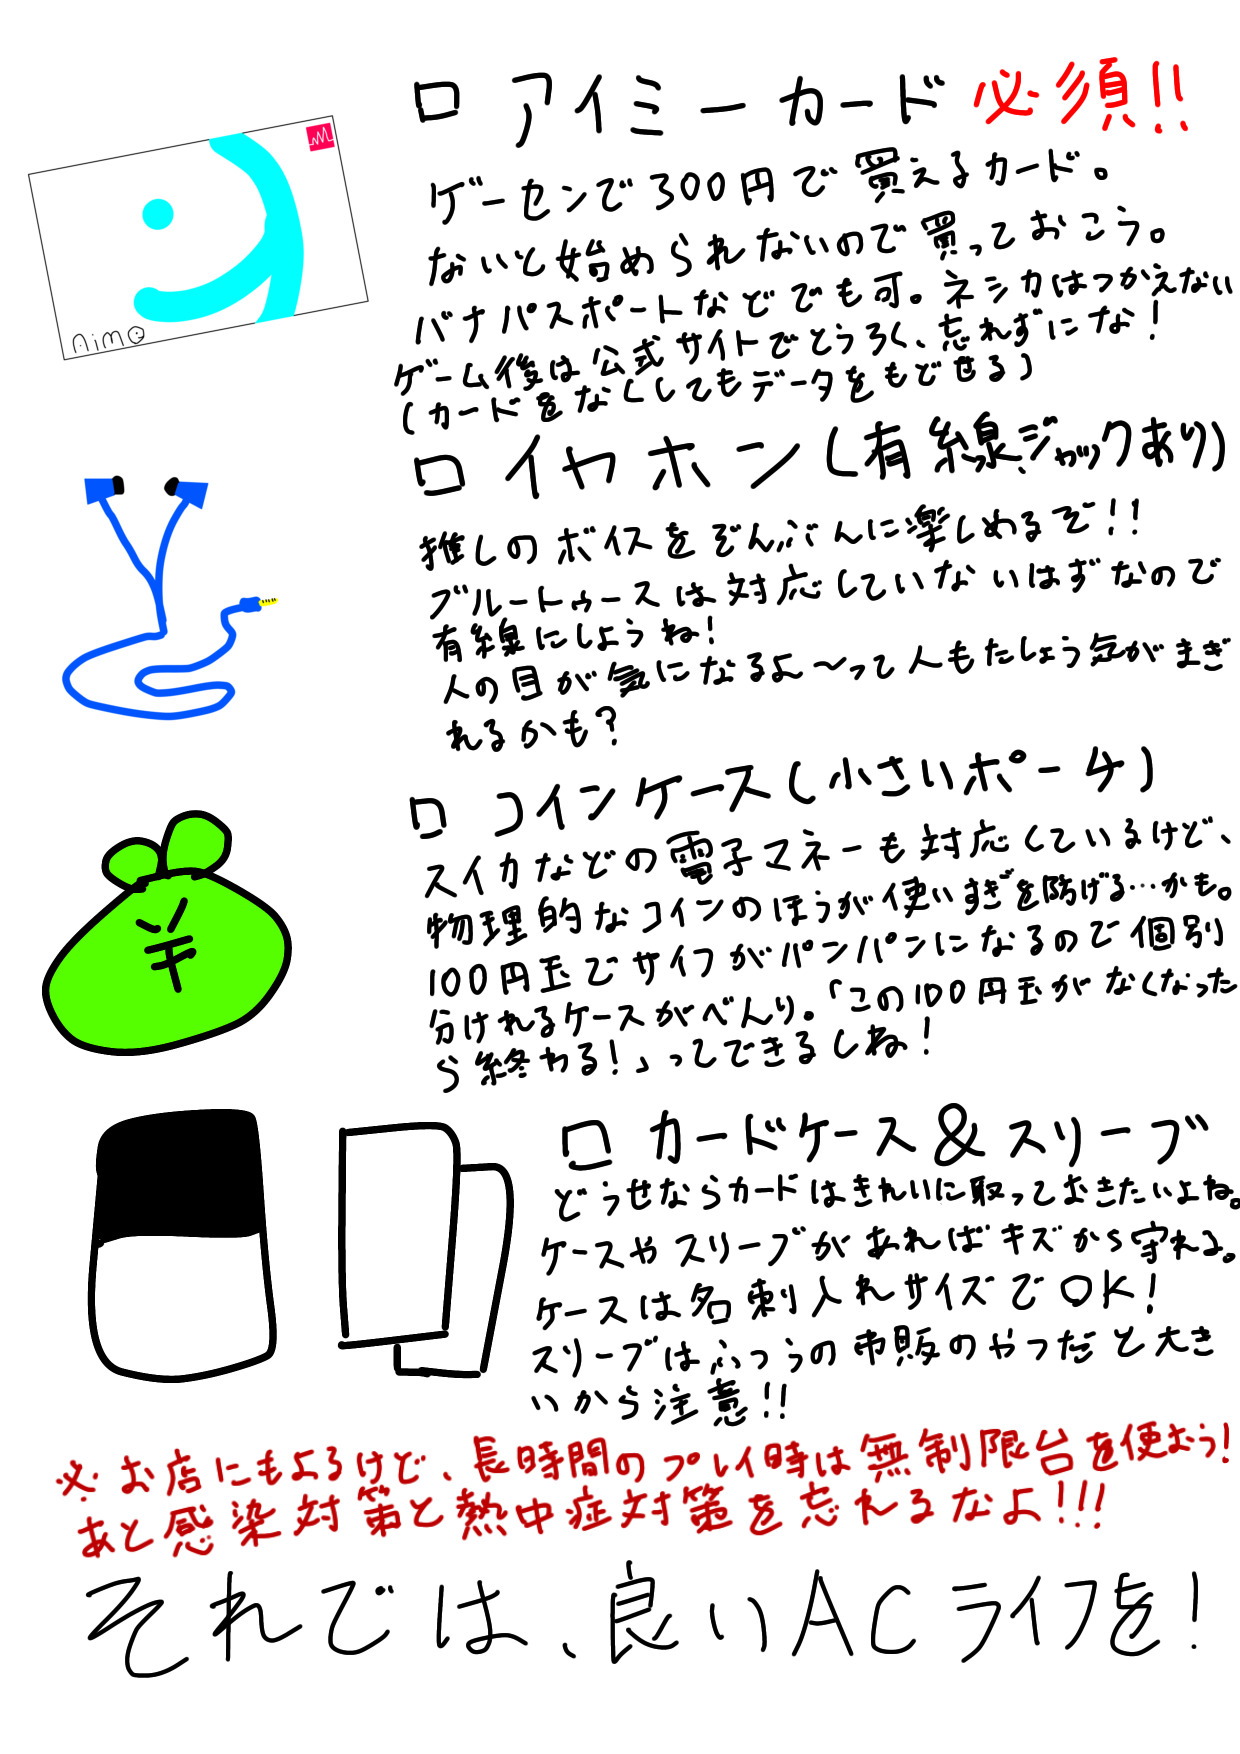 □ アイミーカード 必須!!
ゲーセンで300円で買えるカード。
ないと始められないので買っておこう。
バナパスポートなどでも可。ネシカはつかえない
ゲーム後は公式サイトでとうろく、忘れずにな!
(カードをなくしてもデータをもどせる)
Aime
□ イヤホン(有線ジャックあり)
推しのボイスをぞんぶんに楽しめるぞ!!
ブルートゥースは対応していないはずなので
有線にしようね!
人の目が気になるよ〜って人もたしょう気がまぎ
れるかも?
□ コインケース(小さいポーチ)
スイカなどの電子マネーも対応しているけど、
物理的なコインのほうが使いすぎを防げる…かも。
100円玉でサイフがパンパンになるので個別
分けれるケースがべんり。「この100円玉がなくなった
ら終わる!」ってできるしね!
¥
□ カードケース&スリーブ
どうせならカードはきれいに取っておきたいよね。
ケースやスリーブがあればキズから守れる。
ケースは名刺入れサイズでOK!
スリーブはふつうの市販のやつだと大き
いから注意!!
※お店にもよるけど、長時間のプレイ時は無制限台を使おう!
あと感染対策と熱中症対策を忘れるなよ!!!
それでは、良いACライフを!